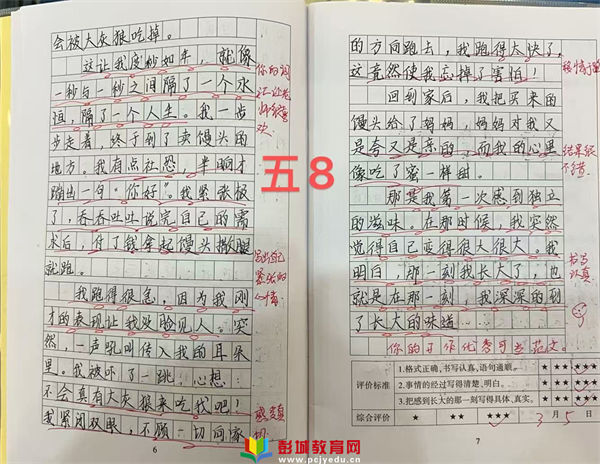 会被大灰狼吃掉。
这让我度秒如年，就像
一秒与一秒之间隔了一个永
恒，隔了一个人生。我一步
步走着，终于到了卖馒头的
地方。我有点社恐，半晌才
蹦出一句“你好”。我紧张极
了，吞吞吐吐说完自己的需
求后，付了钱拿起馒头撒腿
就跑。
我跑得很急，因为我刚
才的表现让我没脸见人。突
然，一声吼叫传入我的耳朵
里。我被吓了一跳，心想：
不会真有大灰狼来吃我吧！
我紧闭双眼，不顾一切向家
6
五8
的方向跑去，我跑得太快了，
这竟然使我忘掉了害怕！
回到家后，我把买来的
馒头给了妈妈，妈妈对我又
是夸又是亲的，而我的心里
像吃了蜜一样甜。
那是我第一次感到独立
的滋味。在那时候，我突然
觉得自己变得很大很大。我
明白，那一刻我长大了，也
就是在那一刻，我深深的到
了长大的味道……
书写
认真
你的习作优秀可当范文。
评价标准
1.格式正确，书写认真，语句通顺。
2.事情的经过写得清楚、明白。
3.把感到长大的那一刻写得具体、真实。
综合评价
3月5日
7
彭城教育网
www.pcjyedu.cn